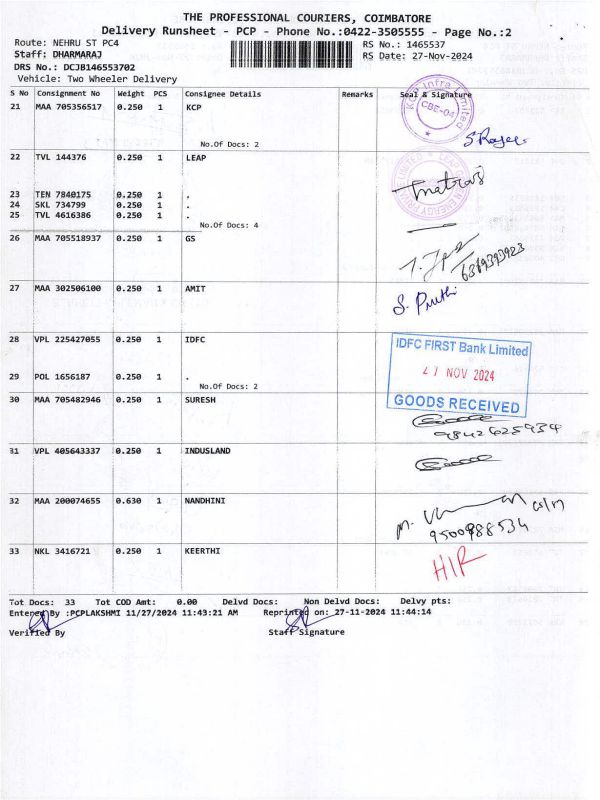 THE PROFESSIONAL COURIERS, COIMBATORE
Delivery Runsheet - PCP - Phone No.:0422-3505555 - Page No.:2
Route: NEHRU ST PC4 RS No.: 1465537
Staff: DHARMARAJ RS Date: 27-Nov-2024
DRS No.: DCJB146553702
Vehicle: Two Wheeler Delivery
S No Consignment No Weight PCS Consignee Details Remarks Seal & Signature
21 MAA 705356517 0.250 1 KCP
KCP Infra Limited
CBE-04
No.Of Docs: 2
22 TVL 144376 0.250 1 LEAP
23 TEN 7840175 0.250 1 .
24 SKL 734799 0.250 1 .
25 TVL 4616386 0.250 1 .
No.Of Docs: 4
26 MAA 705518937 0.250 1 GS
6369393923
27 MAA 302506100 0.250 1 AMIT
28 VPL 225427055 0.250 1 IDFC
IDFC FIRST Bank Limited
27 NOV 2024
GOODS RECEIVED
29 POL 1656187 0.250 1 .
No.Of Docs: 2
30 MAA 705482946 0.250 1 SURESH
9842625934
31 VPL 405643337 0.250 1 INDUSLAND
32 MAA 200074655 0.630 1 NANDHINI
9500988534
33 NKL 3416721 0.250 1 KEERTHI
Tot Docs: 33 Tot COD Amt: 0.00 Delvd Docs: Non Delvd Docs: Delvy pts:
Entered By :PCPLAKSHMI 11/27/2024 11:43:21 AM Reprinted on: 27-11-2024 11:44:14
Verified By Staff Signature